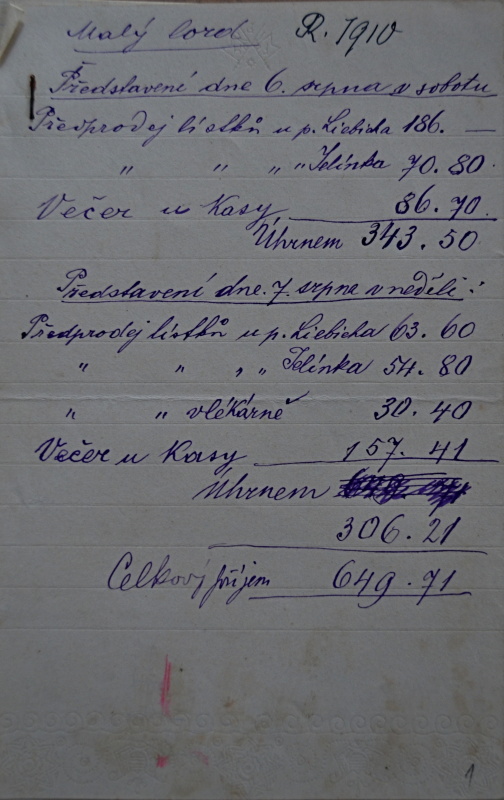 Malý lord R. 1910
Představení dne 6. srpna v sobotu
Předprodej lístků u p. Liebicha 186. —
„ „ „ „ Jelínka 70. 80.
Večer u Kasy 86. 70.
Úhrnem 343. 50
Představení dne 7. srpna v neděli :
Předprodej lístků u p. Liebicha 63. 60
„ „ „ „ Jelínka 54. 80
„ „ v lékárně 30. 40
Večer u Kasy 157. 41
Úhrnem
306. 21
Celkový příjem 649. 71
1